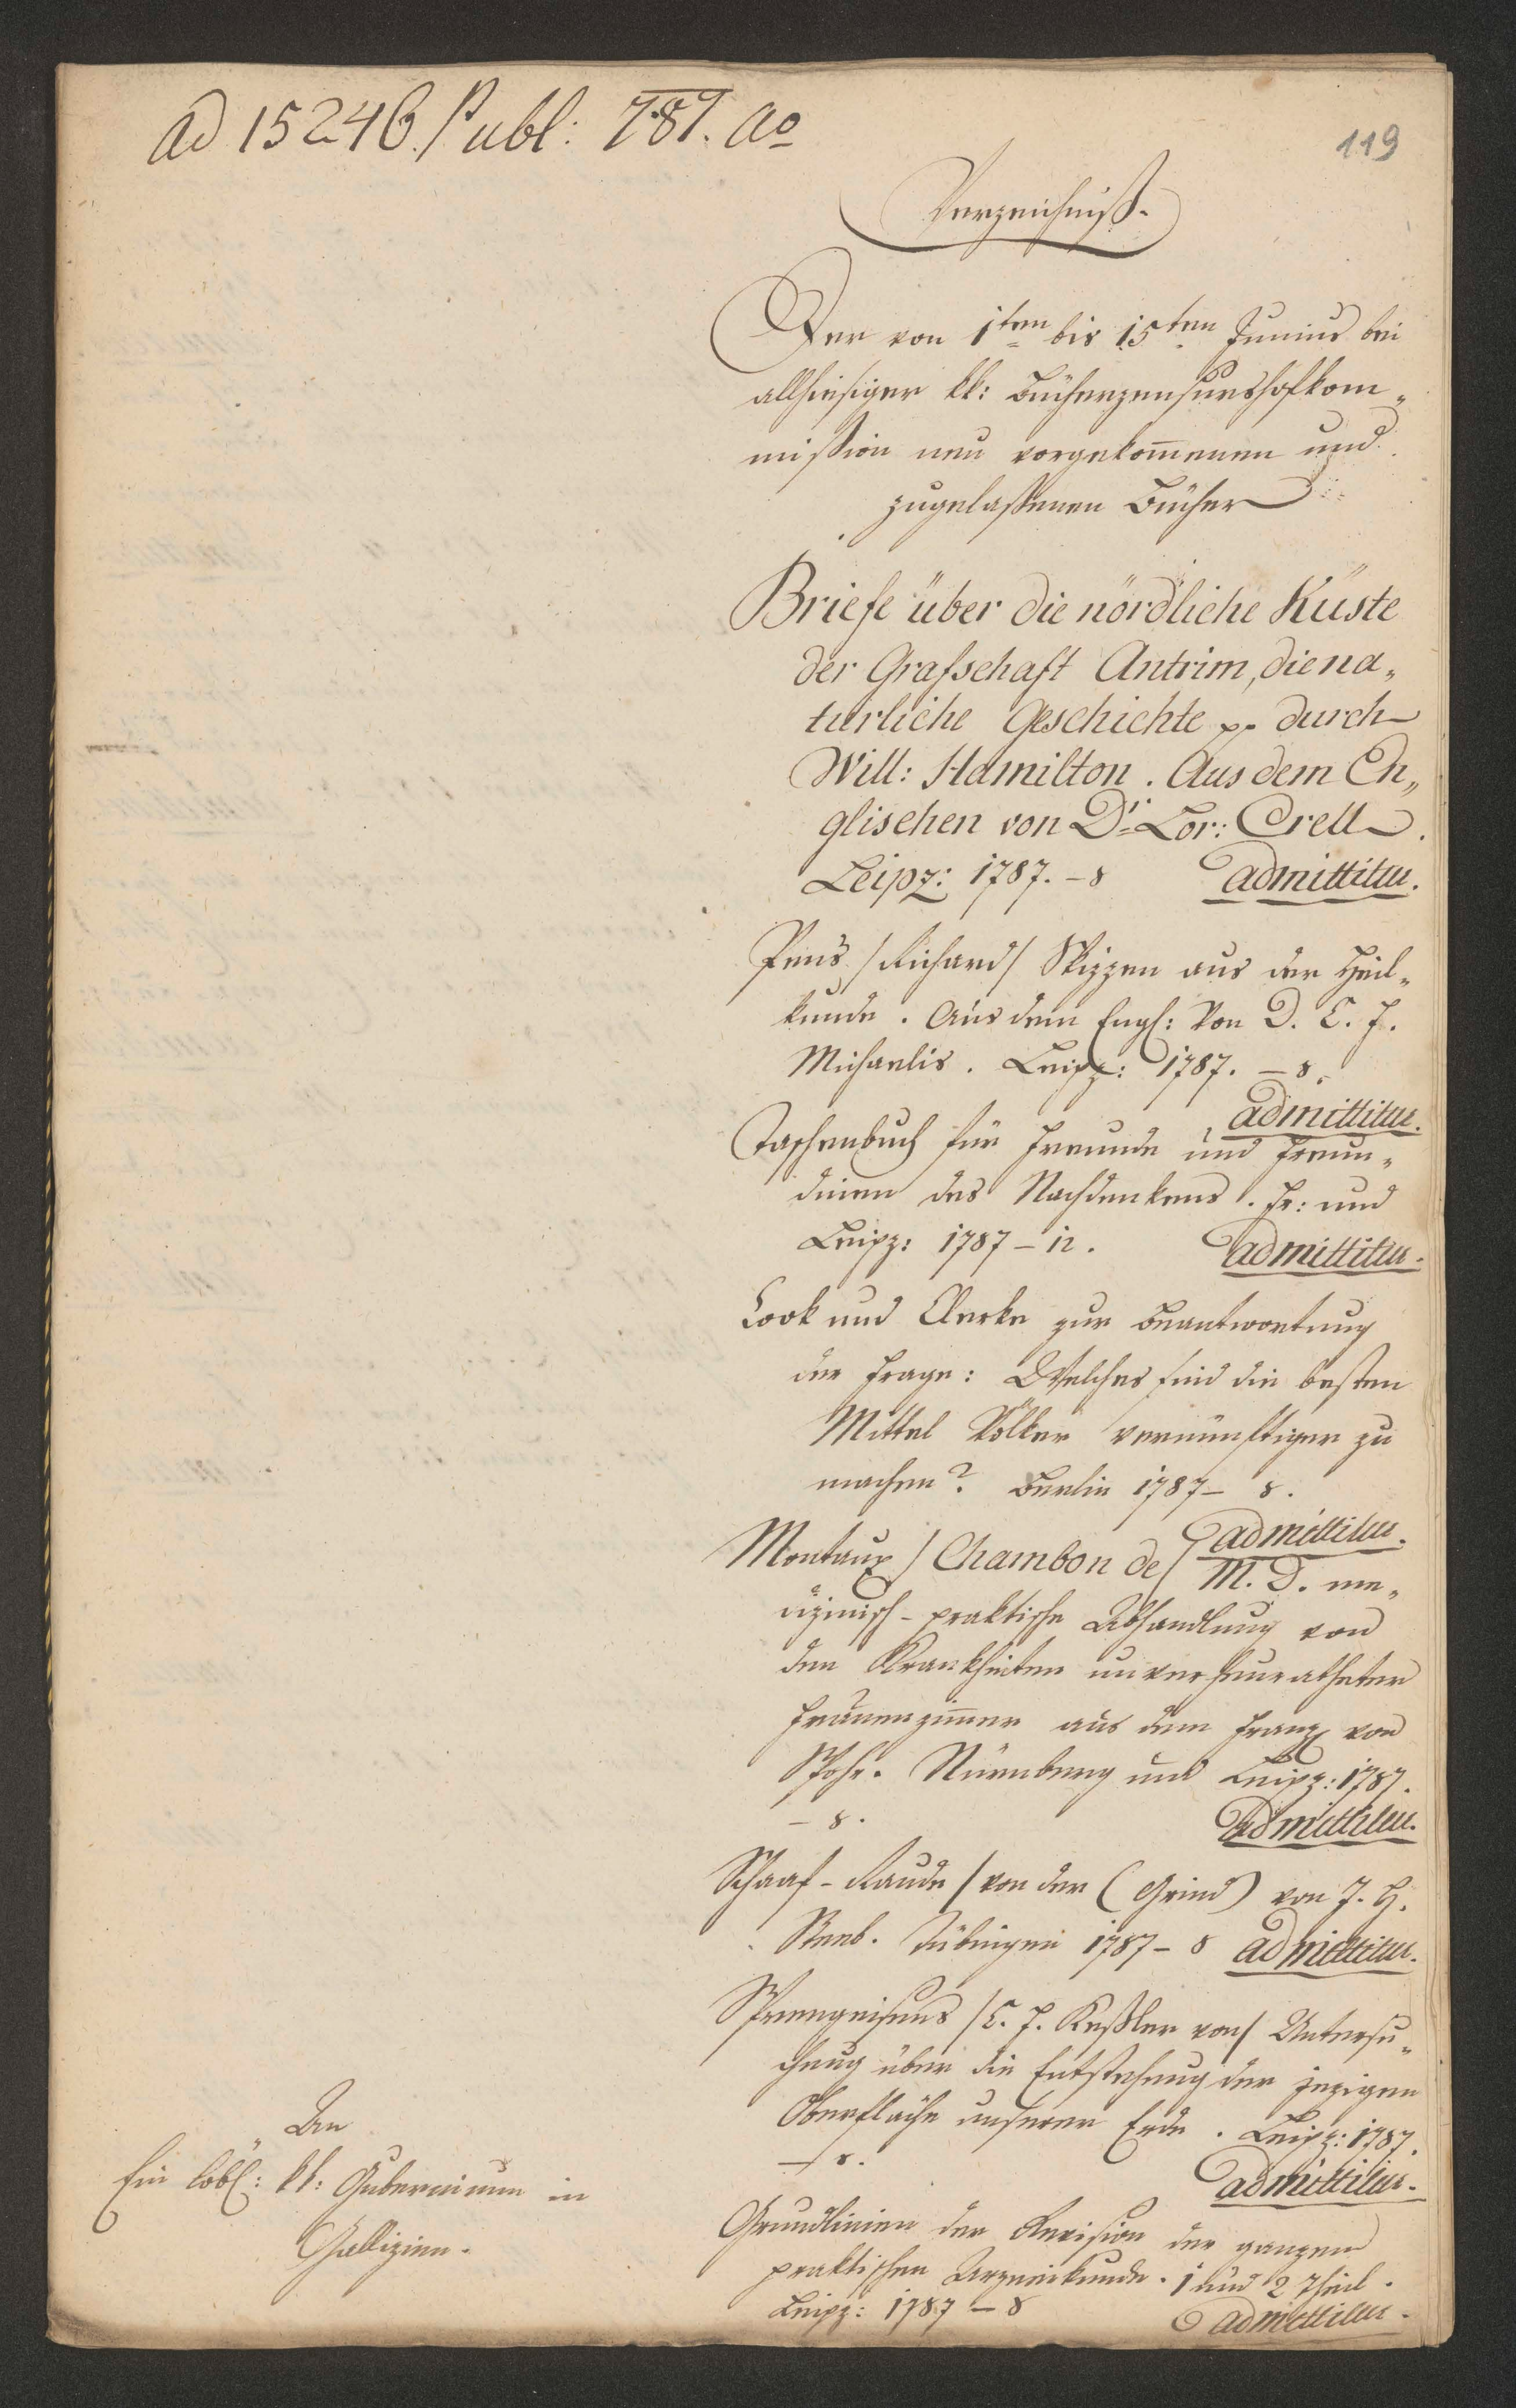 ad 15246. Publ: 787. ao
119
Verzeichniß.
Der von 1ten bis 15ten Junius bei
allhiesiger kk: Bücherzensurshofkom„
mißion neu vorgekom̄enen und
zugelaßenen Bücher
Briefe über die nördliche Küste
der Grafschaft Antrim, die na„
türliche Geschichte pp durch
Will: Hamilton. Aus dem En„
glischen von Dr. Lor: Crell.
Leipz: 1787. – 8 admittitur.
/Richard/ Skizzen aus der Heil„
kunde. Aus dem Engl: Von D. C. F.
Michaelis. Leipz: 1787. – 8.
admittitur.
Taschenbuch für Freunde und Freun„
dinen des Nachdenkens. Fr: und
Leipz: 1787 – 12. admittitur.
Cook und Clerke zur Beantwortung
der Frage: Welches sind die besten
Mittel Völker vernünftiger zu
machen? Berlin 1787 – 8.
admittitur.
Montaux /Chambon de/ M. D. me„
dizinisch-praktische Abhandlung von
den Krankheiten unverheuratheter
Frauenzim̄er aus dem Franz von
Spohr. Nürnberg und Leipz: 1787.
– 8. admittitur.
Schaaf-Raude /von der (Grind) von J. G.
Steeb. Tübingen 1787 – 8 admittitur.
Sprengeisens /C. F. Keßler von/ Untersu„
chung über die Entstehung der jezigen
Oberfläche unserer Erde. Leipz: 1787.
– 8. admittitur.
Grundlinien der Revision der ganzen
praktischen Arzneikunde. 1 und 2 Theil.
Leipz: 1787 – 8 admittitur.
An
Ein löbl: kk: Gubernium in
Gallizien.